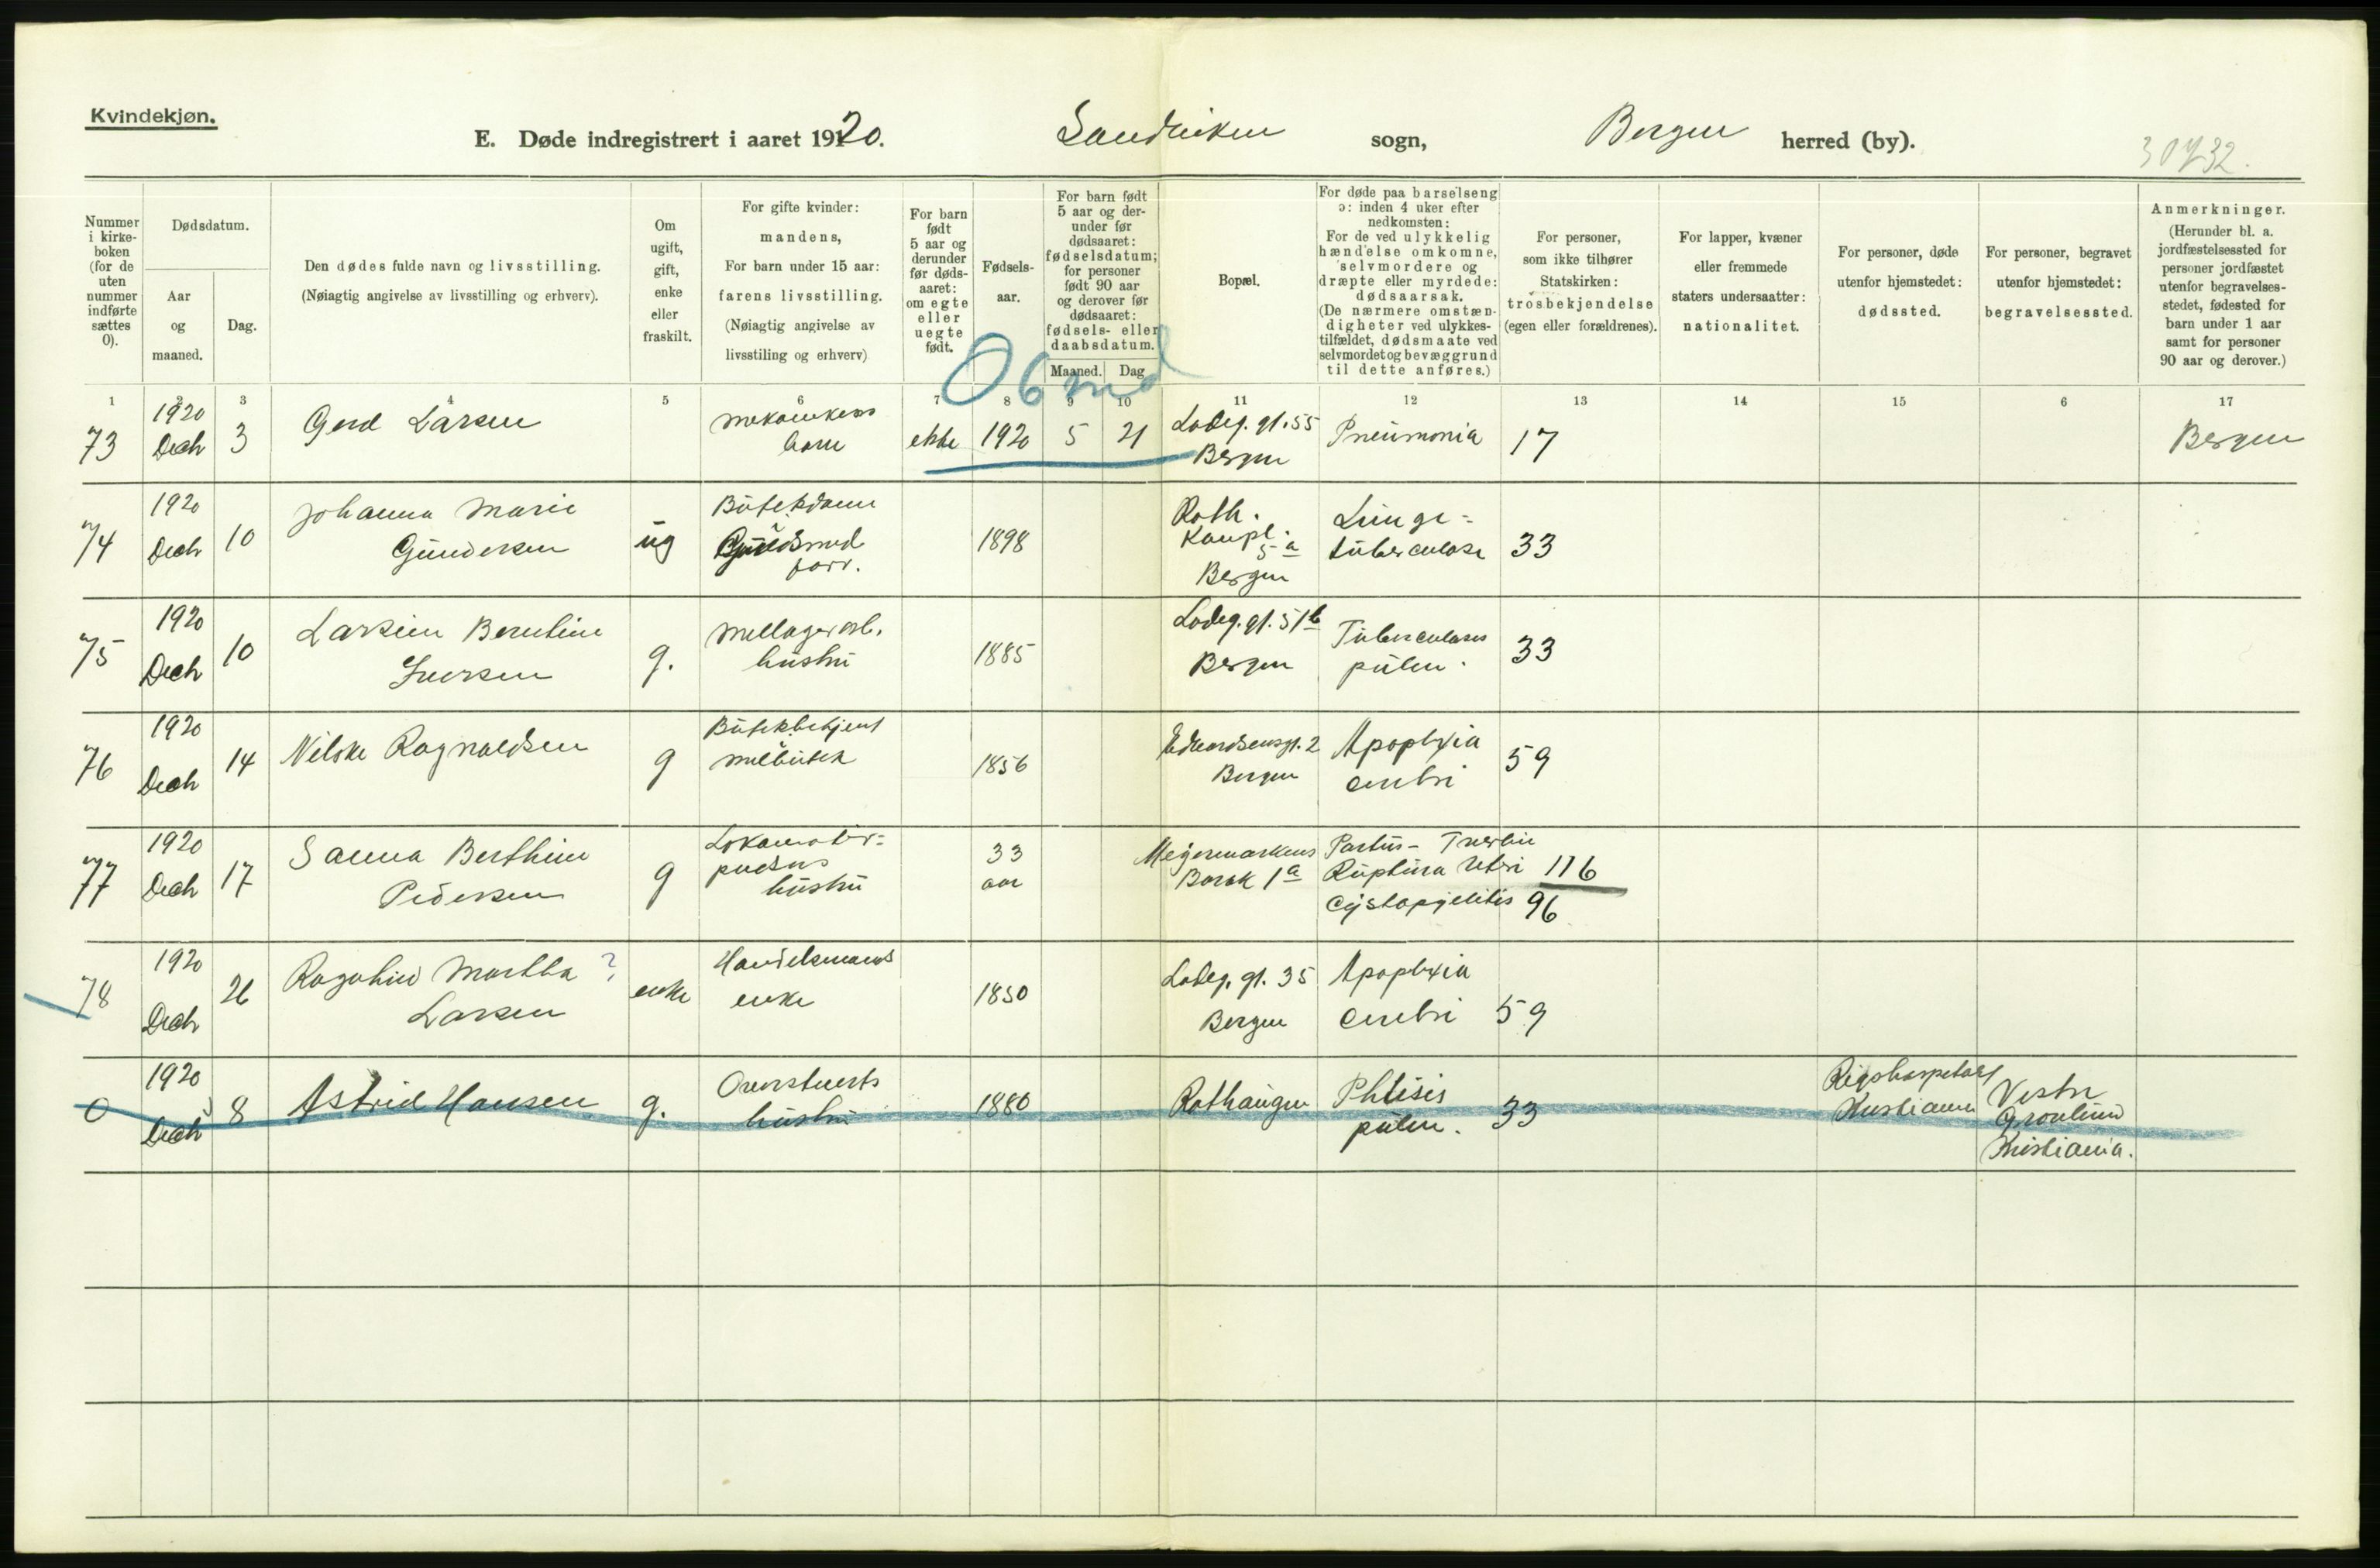 Kvindekjøn.
E. Døde indregistrert i aaret 1920. Sandviken sogn, Bergen herred (by).
30732.
Nummer i kirke-boken (for de uten nummer indførte sættes 0).
Dødsdatum.
Aar og maaned.
Dag.
Den dødes fulde navn og livsstilling.
(Nøiagtig angivelse av livsstilling og erhverv).
Om ugift, gift, enke eller fraskilt.
For gifte kvinder: mandens,
For barn under 15 aar: farens livsstilling.
(Nøiagtig angivelse av livsstiling og erhverv)
For barn født 5 aar og derunder før døds-aaret: om egte eller uegte født.
Fødsels-aar.
For barn født 5 aar og der-under før dødsaaret: fødselsdatum; for personer født 90 aar og derover før dødsaaret: fødsels- eller daabsdatum.
Maaned. Dag
Bopæl.
For døde paa barselseng ɔ: inden 4 uker efter nedkomsten:
For de ved ulykkelig hændelse omkomne, selvmordere og dræpte eller myrdede: dødsaarsak.
(De nærmere omstæn-digheter ved ulykkes-tilfældet, dødsmaate ved selvmordet og bevæggrund til dette anføres.)
For personer, som ikke tilhører Statskirken: trosbekjendelse (egen eller forældrenes).
For lapper, kvæner eller fremmede staters undersaatter: nationalitet.
For personer, døde utenfor hjemstedet: dødssted.
For personer, begravet utenfor hjemstedet: begravelsessted.
Anmerkninger.
(Herunder bl. a. jordfæstelsessted for personer jordfæstet utenfor begravelses-stedet, fødested for barn under 1 aar samt for personer 90 aar og derover.)
06 md
1 2 3 4 5 6 7 8 9 10 11 12 13 14 15 6 17
73 1920 Decb 3 Gerd Larsen mekanikers barn ekte 1920 5 21 Ladeg. gt. 55 Bergen Pneumonia 17 Bergen
74 1920 Decb 10 Johanna Marie Gundersen ug Butikdame Guldsmed forr. 1898 Roth. Kaupl. 5 a Bergen Lunge= tuberculose 33
75 1920 Decb 10 Larsine Berntine Iversen g. Mellagerarb. hustru 1885 Ladeg. gt. 51 b Bergen Tuberculosis pulm. 33
76 1920 Decb 14 Nilske Ragnvaldsen g Butikbetjent melbutik 1856 Edvardsensgt. 2 Bergen Apoplexia cerebri 59
77 1920 Decb 17 Sanna Berthine Pedersen g Lokomotiv= pudsers hustru 33 aar Meyermarkens Barak 1 a Partus - Ruptura Uteri 116 Cystopyelitis 96
78 1920 Decb 26 Ragnhild Martha ? Larsen enke Handelsmands enke 1850 Ladeg. gt. 35 Bergen Apoplexia cerebri 59
0 1920 Decb 8 Astrid Hansen g. Overstuerts hustru 1880 Rothaugen Phtisis pulm. 33 Rigshospitalet Kristiania Vestre Gravlund Kristiania.